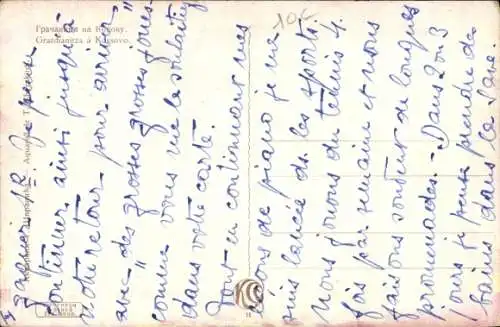 10.-
Грачаница на Косову.
Gratchanitza á Kossovo.
janvier 12. Je pense
continuer ainsi jusqu'à
notre retour pour avoir "
avec des grosses joues
" comme vous me le souhaitez
dans votre carte.
Tout en continuant mes
leçons de piano je me
suis lancée dans les sports.
Nous jouons du tennis 4
fois par semaine et nous
faisons souvent de longues
promenades. - Dans 2 on 3
jours je pense prendre des
bains dans la Save.